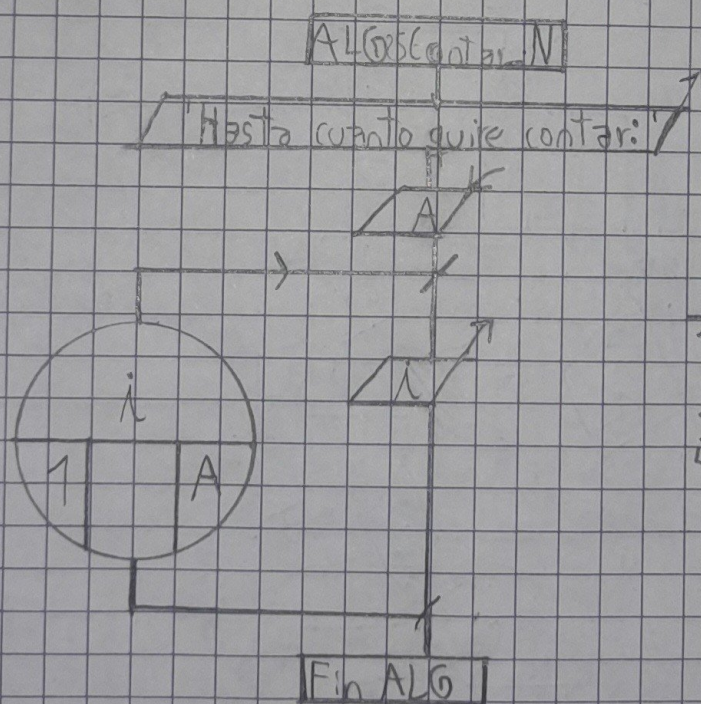 ALGOescontar_N
"Hasta cuanto quire contar:"
A
i
i
1 A
Fin ALG